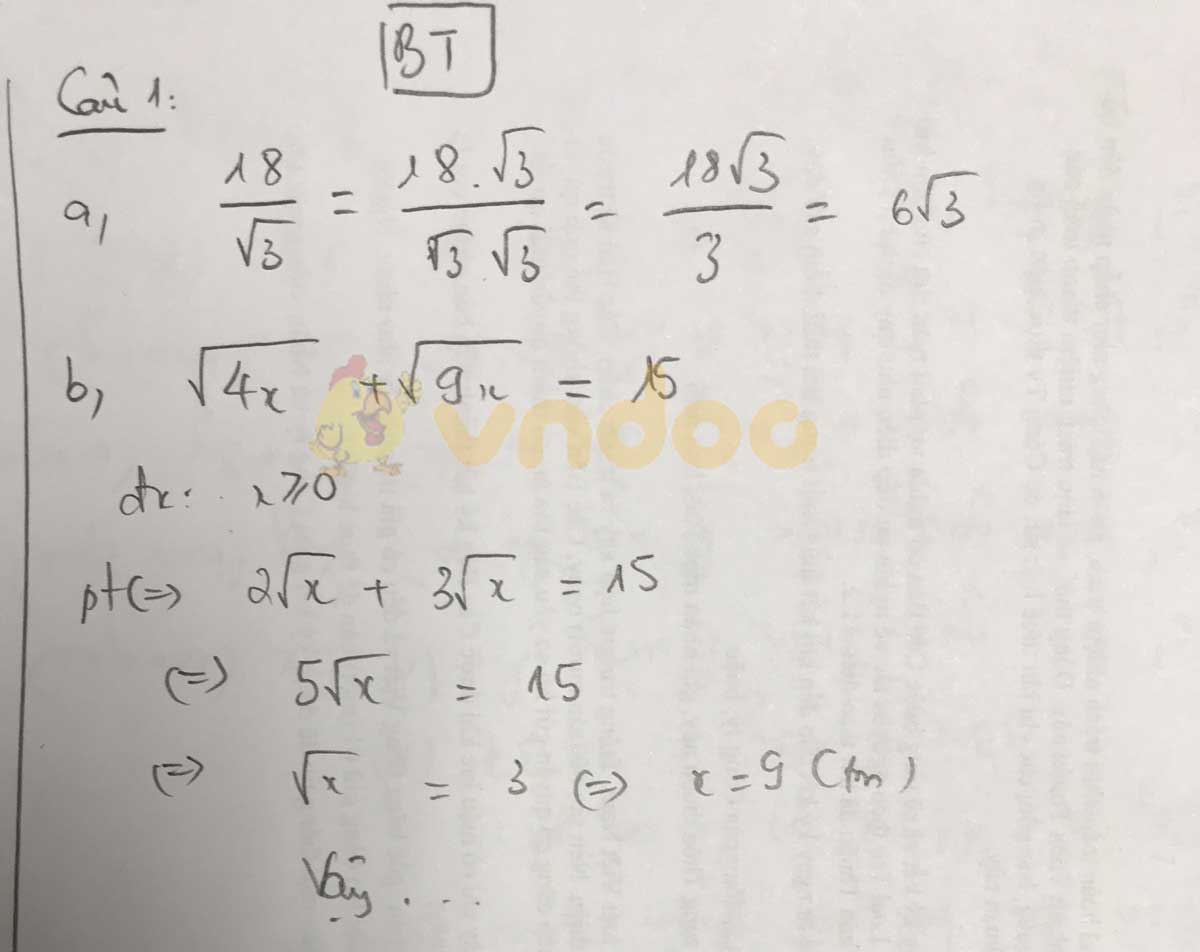 BT
Câu 1:
a, 18/√3 = 18.√3/√3 √3 = 18√3/3 = 6√3
b, √4x + √9x = 15
vndoc
đk: x ≥ 0
pt <=> 2√x + 3√x = 15
<=> 5√x = 15
<=> √x = 3 <=> x = 9 (tm)
Vậy ....